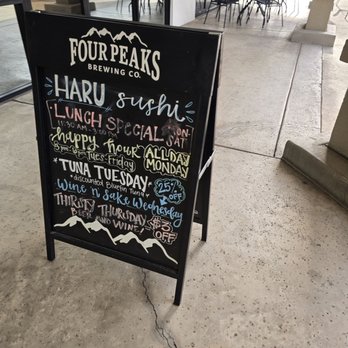 FOUR PEAKS
BREWING CO.
HARU sushi
LUNCH SPECIAL MON SAT
11:30 AM - 3:00 PM
happy hour ALL DAY
Tues - Friday MONDAY
TUNA TUESDAY
discounted Bluefin Tuna 25% OFF
Wine n Sake Wednesday
THIRSTY THURSDAY $3
BEER AND WINE! OFF